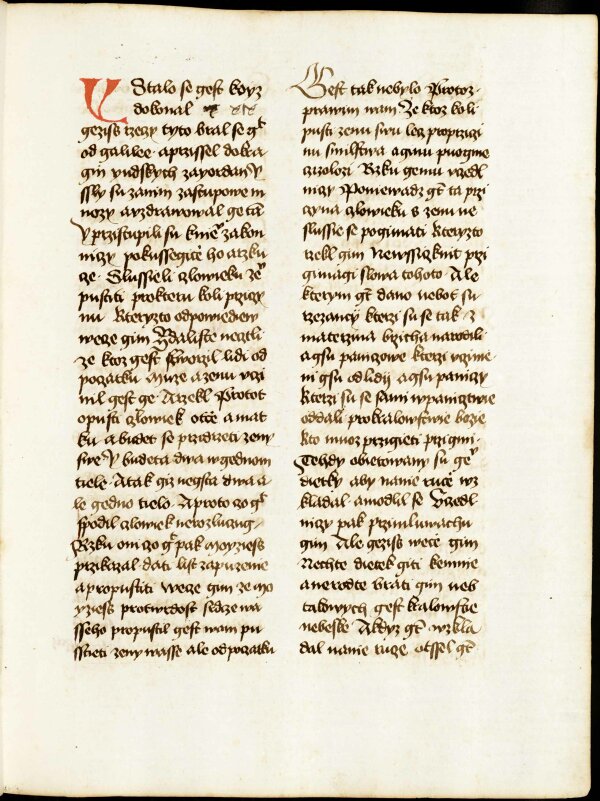 Stalo se gest kdyz
dokonal xix
geziss rzeczy tyto bral se gt
od galilee a przissel do kra
gin zydskych za yordan Y
ssly su za nim zastupowe m
nozy a vzdrawowal ge ta
Y przistupili su k nie zakon
niczy pokussegicze ho a rzku
cze Slussieli czlowieku ze
pustiti pro kteru koli przicz
nu Kteryzto odpowiediew
wecze gim Y zdaliste necztli
ze ktoz gest stworzil lidi od
poczatku muze a zenu vczi
nil gest ge A rzekl Protot
opusti czlowiek otcze a mat
ku a budet se przidrzeti zeny
swe Y budeta dwa w gednom
tiele A tak giz negsta dwa a
le gedno tielo A protoczo gt
spogil czlowiek nerozluczug
Rzku om czo gt pak moyziess
przikazal dati list zapuzenie
a propustiti Wecze gim ze mo
yziess pro twrdost srdcze wa
sseho propustil gest wam pu
sstieti zeny wasse ale od poczatku
Gest tak nebylo Protoz
prawim wam Ze ktoz koli
pusti zenu swu lecz pro przicz
nu smilstwa a ginu puogme
czizolozi Rzku gemu vczedl
niczy Poniewadz gt ta przi
czyna czlowieku s zenu ne
slussie se pogimati Kteryzto
rzekl gim Ne wssiczknit przi
gimagi slowa tohoto Ale
kterym gt dano nebot su
rzezanczy kterzi su se tak z
materzina brzicha narodili
a gsu paniczowe kterzi vczinie
ni gsu od lidij a gsu paniczy
kterzi su se sami w paniczstwie
oddali pro kralowstwie bozie
kto muoz przigieti przigmi
Tehdy obietowany su ge
dietky aby na nie rucze wz
kladal a modlil se Vczedl
niczy pak przimluwachu
gim Ale geziss wecze gim
Nechte dietek giti ke mnie
a nerodte brati gim neb
takowych gest kralowstwie
nebeske A kdyz gt wzkla
dal na nie rucze otssel gt